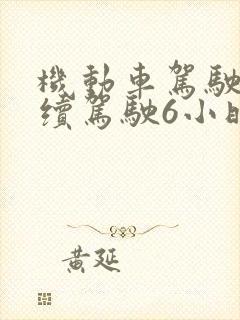 機動車駕駛
續駕駛6小時
黃延